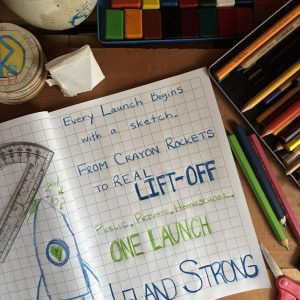 Every Launch Begins
with a sketch.
From Crayon Rockets
to Real Lift-Off
Public. Private. Homeschool.
One Launch
Leland Strong